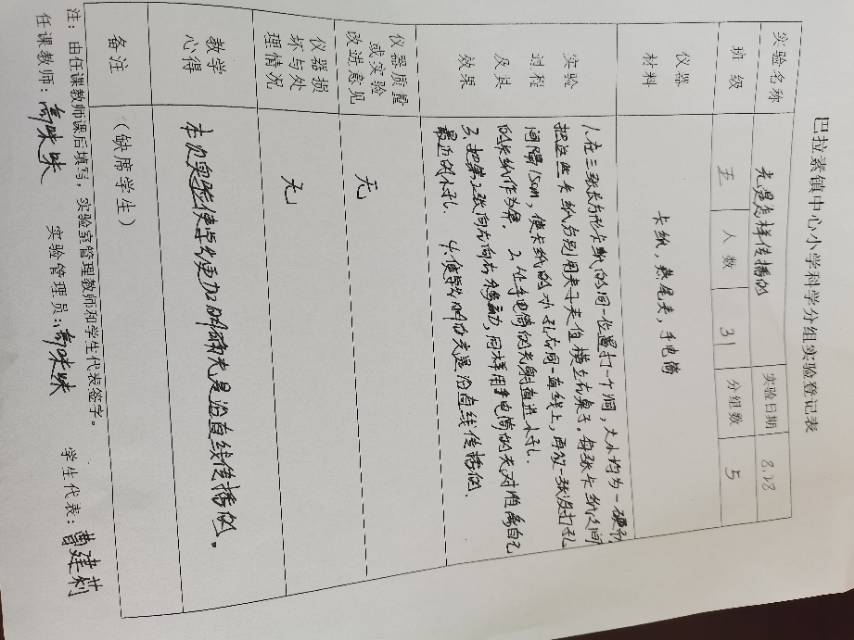 巴拉素镇中心小学科学分组实验登记表
实验名称 光是怎样传播的 实验日期 8.28
班级 五 人数 31 分组数 5
仪器材料 卡纸，燕尾夹，手电筒
实验过程及其效果 1.在三张长方形卡纸的同一位置打一个洞，大小均为一硬币
把这些卡纸分别用夹子夹住横立在桌子。每张卡纸之间
间隔15cm，使卡纸的小孔在同一直线上，再做一张没打孔
的卡纸作为屏。 2.让手电筒的光射进小孔。
3.把第2张向左向右移动，同样用手电筒的光对准离自己
最近的小孔。 4.使学生明白光是沿直线传播的。
仪器质量或实验改进意见 无
仪器损坏与处理情况 无
教学心得 本次实验使学生更加明确光是沿直线传播的。
备注 （缺席学生）
注：由任课教师课后填写，实验室管理教师和学生代表签字。
任课教师： 实验管理员： 学生代表：曹建莉